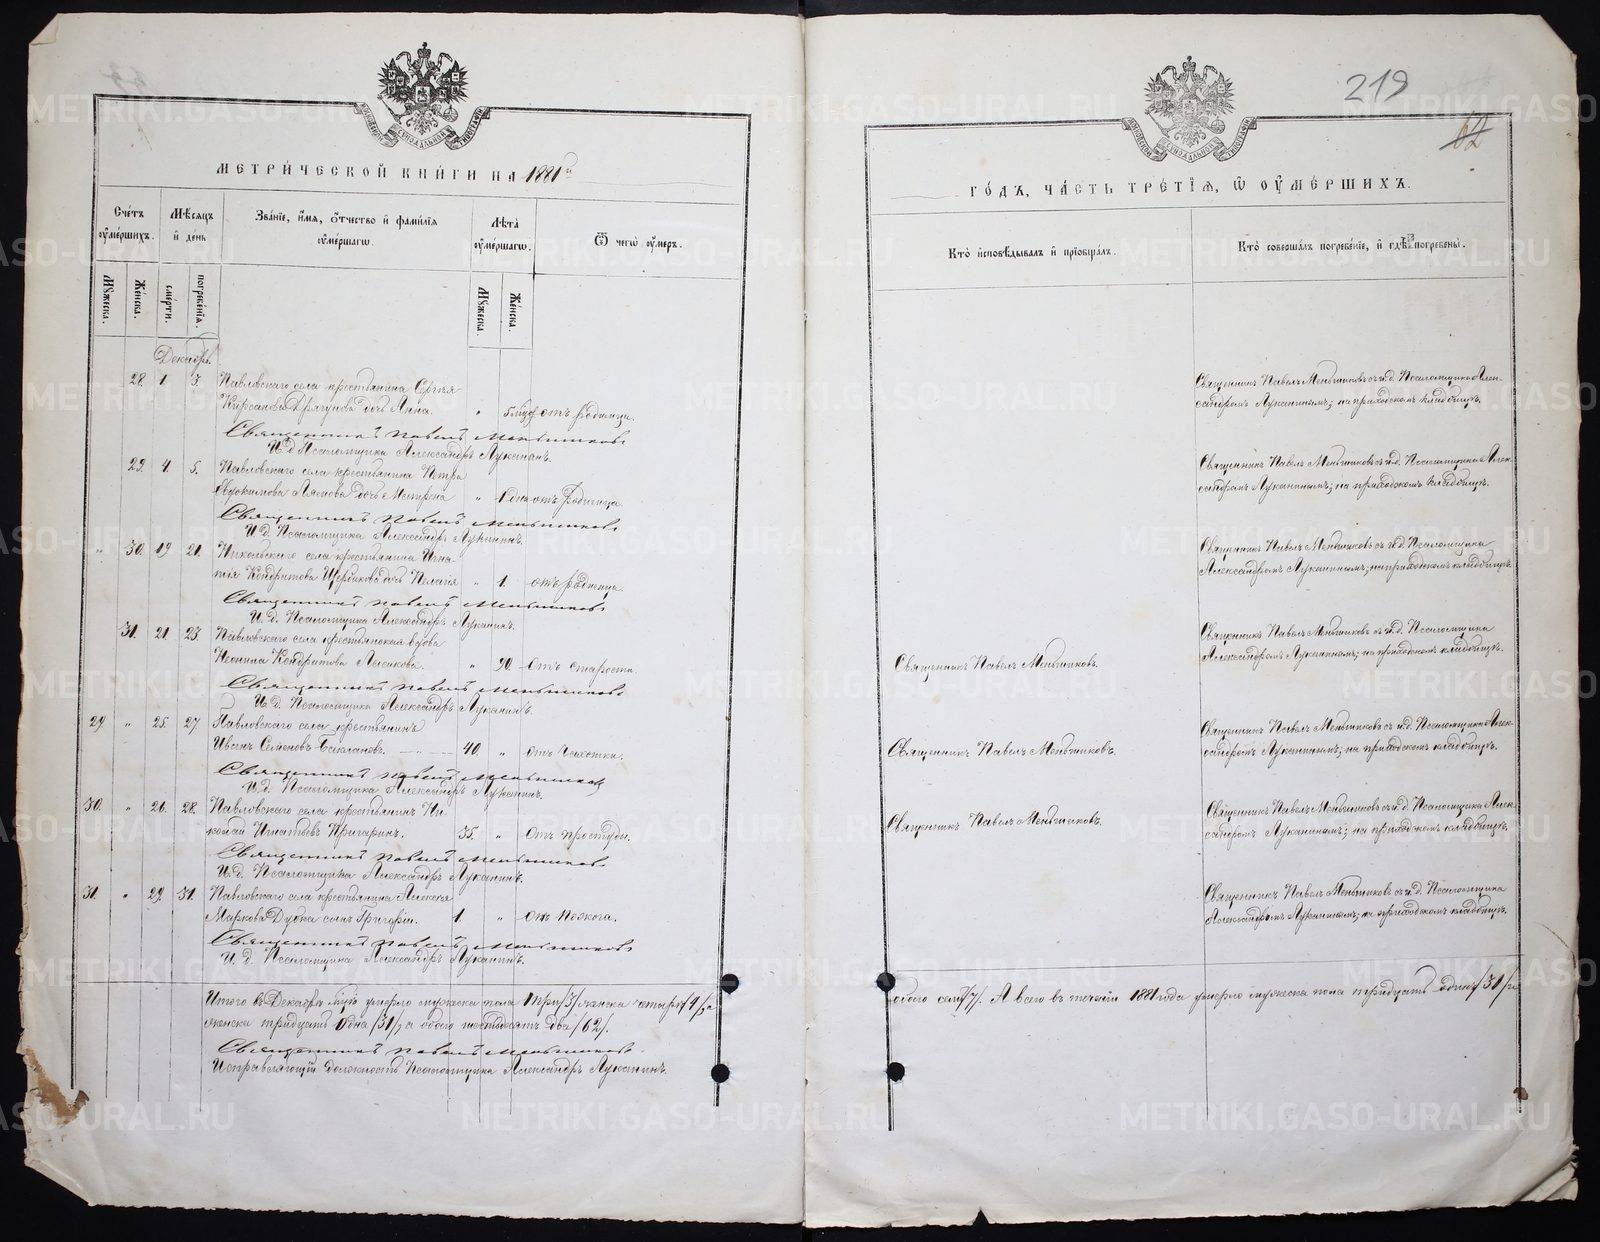 219
62
МЕТРИЧЕСКОЙ КНИГИ НА 1881й
ГОДЪ, ЧАСТЬ ТРЕТІЯ, Ѿ ОУМЕРШИХЪ.
Счетъ оумершихъ.
Мѣсяцъ и день
Званіе, имя, отчество и фамилія оумершагѡ.
Лѣта оумершагѡ.
Ѿ чегѡ оумеръ.
Кто исповѣдывалъ и пріобщалъ.
Кто совершалъ погребеніе, и гдѣ погребены.
Мужеска.
Женска.
смерти.
погребенія.
Мужеска.
Женска.
Декабрь.
28. 1. 3. Павловскаго села крестьянина Сергѣя
Кирсанова дочь Анна. " 5 отъ родимца.
Священникъ Павелъ Меньшиковъ
И. д. Псаломщика Александръ Луканинъ.
Священникъ Павелъ Меньшиковъ съ и. д. Псаломщика Алек-
сандромъ Луканинымъ; на приходскомъ кладбищѣ.
29. 4. 5. Павловскаго села крестьянина Петра
Евдокимова дочь Матрена " 1 дня отъ родимца.
Священникъ Павелъ Меньшиковъ
И. д. Псаломщика Александръ Луканинъ.
Священникъ Павелъ Меньшиковъ съ и. д. Псаломщика Алек-
сандромъ Луканинымъ; на приходскомъ кладбищѣ.
" 30. 19. 21. села крестьянина Игна-
тія Кондратова Щербакова дочь Пелагія " 1. отъ родимца.
Священникъ Павелъ Меньшиковъ
И. д. Псаломщика Александръ Луканинъ.
Священникъ Павелъ Меньшиковъ съ и. д. Псаломщика
Александромъ Луканинымъ; на приходскомъ кладбищѣ.
31. 21. 23. Павловскаго села крестьянская вдова
Неонила Кондратова " 90. отъ старости.
Священникъ Павелъ Меньшиковъ
И. д. Псаломщика Александръ Луканинъ.
Священникъ Павелъ Меньшиковъ.
Священникъ Павелъ Меньшиковъ съ и. д. Псаломщика
Александромъ Луканинымъ; на приходскомъ кладбищѣ.
29. " 25. 27. Павловскаго села крестьянинъ
Иванъ Семеновъ Баклановъ. 40. " отъ чахотки.
Священникъ Павелъ Меньшиковъ
И. д. Псаломщика Александръ Луканинъ.
Священникъ Павелъ Меньшиковъ.
Священникъ Павелъ Меньшиковъ съ и. д. Псаломщика Алек-
сандромъ Луканинымъ; на приходскомъ кладбищѣ.
30. " 26. 28. Павловскаго села крестьянинъ Ни-
колай Игнатьевъ Пригаринъ. 35. " отъ простуды.
Священникъ Павелъ Меньшиковъ
И. д. Псаломщика Александръ Луканинъ.
Священникъ Павелъ Меньшиковъ.
Священникъ Павелъ Меньшиковъ съ и. д. Псаломщика Алек-
сандромъ Луканинымъ; на приходскомъ кладбищѣ.
31. " 29. 31. Павловскаго села крестьянина Алексѣя
Маркова Дубка сынъ Григорій. 1. " отъ поноса.
Священникъ Павелъ Меньшиковъ
И. д. Псаломщика Александръ Луканинъ.
Священникъ Павелъ Меньшиковъ съ и. д. Псаломщика
Александромъ Луканинымъ; на приходскомъ кладбищѣ.
Итого въ Декабрѣ умерло мужеска пола три /3/ женска четыре /4/, а
обоего семь /7/. А всего въ теченіи 1881 года умерло мужеска пола тридцать одинъ /31/ и
женска тридцать одна /31/, а обоего шестьдесятъ два /62/.
Священникъ Павелъ Меньшиковъ.
Исправляющій должность Псаломщика Александръ Луканинъ.
METRIKI.GASO-URAL.RU